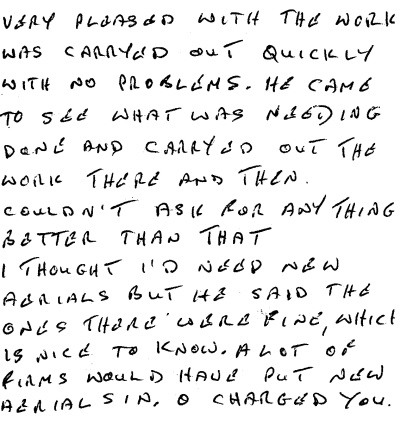 VERY PLEASED WITH THE WORK
WAS CARRYED OUT QUICKLY
WITH NO PROBLEMS. HE CAME
TO SEE WHAT WAS NEEDING
DONE AND CARRYED OUT THE
WORK THERE AND THEN.
COULDN'T ASK FOR ANY THING
BETTER THAN THAT
I THOUGHT I'D NEED NEW
AERIALS BUT HE SAID THE
ONES THERE WERE FINE, WHICH
IS NICE TO KNOW. A LOT OF
FIRMS WOULD HAVE PUT NEW
AERIALS IN, & CHARGED YOU.